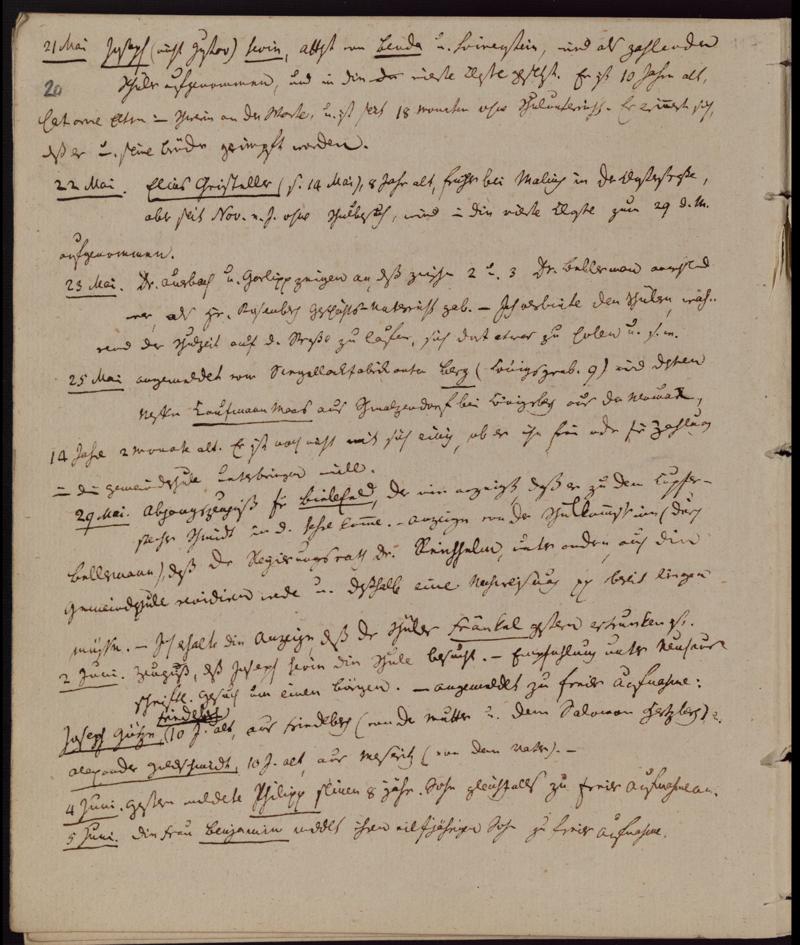 21 Mai Joseph (nicht Gustav) Levin, attest von Benda u. Löwenstein, wird als zahlender
20 Schüler aufgenommen, und in die vierte Klasse gesetzt. Er ist 10 Jahre alt,
hat arme Eltern u. ist seit 18 Monaten ohne Schulunterricht. Er erinnert sich,
daß er u. seine Brüder geimpft worden.
22 Mai. Elias Christeller (s. 14 Mai), 8 Jahr alt, früher bei Maling in der Klosterstraße,
aber seit Nov. v. J. ohne Schulbesuch, wird in die vierte Klasse zum 29 d. M.
aufgenommen.
23 Mai. Dr. Auerbach u. Gorlipp zeigen an, daß zwischen 2 u. 3 Dr. Bellerman
als Hr. Rosenberg Unterricht gab. – Ich verbiete den Schülern, wäh-
rend der Schulzeit auf d. Straße zu laufen, sich dort etwas zu holen u. s. w.
25 Mai angemeldet vom Siegellackfabrikanten Berg (Königsgrab. 9) wird dessen
Neffe Kaufmann Maas aus bei Königsberg aus der Neumark,
14 Jahre 2 Monate alt. Er ist noch nicht mit sich einig, ob er ihn frei oder für Zahlung
in die Gemeindeschule unterbringen will.
29 Mai. Abgangszeugniß für Bielefeld, der mir anzeigt daß er zu dem Kupfer-
stecher Schmidt in d. Lehre komme. – Anzeige von der Schulkommission (durch
Bellermann), daß der Regierungsrath Dr. Reichhelm, unter andern auch die
Gemeindeschule revidiren werde u. deshalb eine Nachweisung pp bereit liegen
müsse. – Ich erhalte die Anzeige, daß der Schüler Fränkel gestern ertrunken ist.
2 Juni. Zeugniß, daß Joseph Levin die Schule besucht. – Empfehlung
schriftl. Gesuch um einen – angemeldet zu freier Aufnahme:
Joseph Götze, (10 J. alt, aus Friedeberg (von der Mutter u. dem Salomon Hertzberg) 2.
Alexander Goldschmidt, 10 J. alt, aus Meseritz (von dem Vater). –
4 Juni. Gestern meldete Philipp seinen 8 jähr. Sohn gleichfalls zu freier Aufnahme an.
5 Juni. die Frau Benjamin meldet ihren elfjährigen Sohn zu freier Aufnahme.